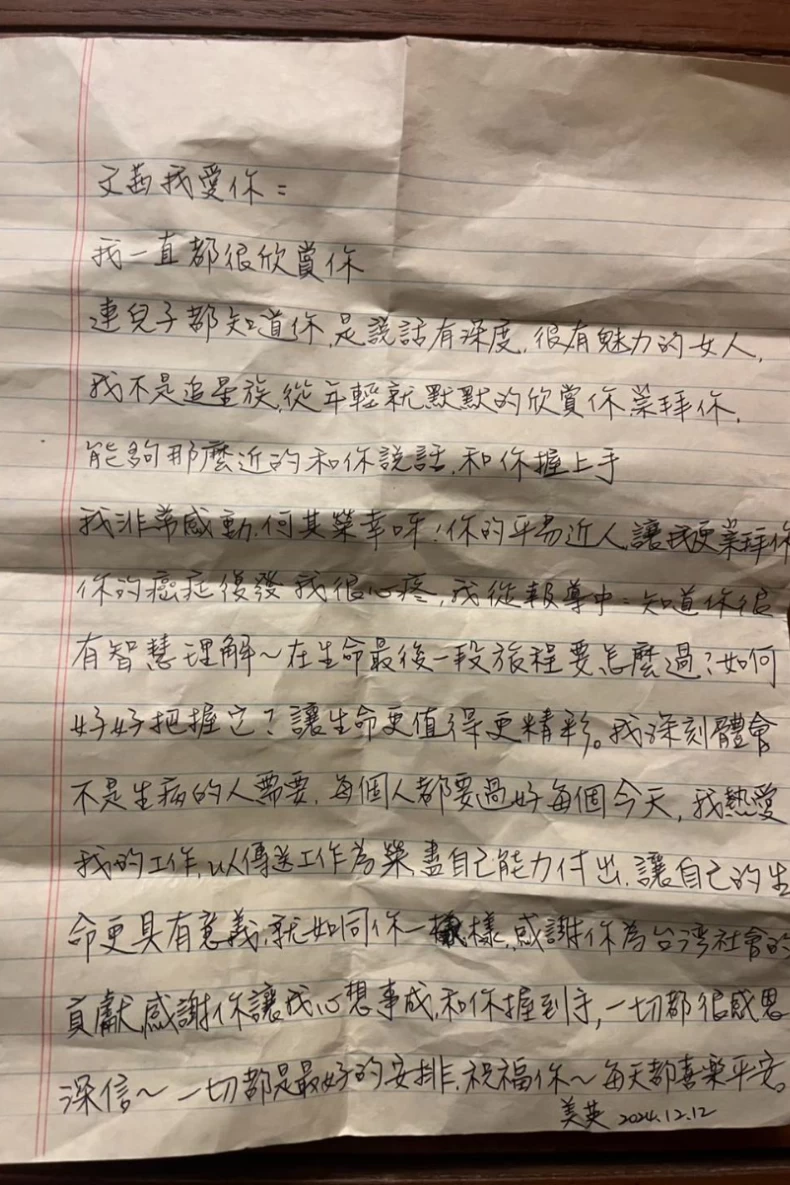 文茜我愛你：
我一直都很欣賞你
連兒子都知道你,是說話有深度,很有魅力的女人,
我不是追星族,從年輕就默默的欣賞你崇拜你,
能夠那麼近的和你說話,和你握上手
我非常感動,何其榮幸呀!你的平易近人,讓我更崇拜你
你的癌症復發我很心疼,我從報導中:知道你很
有智慧理解~在生命最後一段旅程要怎麼過?如何
好好把握它?讓生命更值得更精彩。我深刻體會
不是生病的人需要,每個人都要過好每個今天,我熱愛
我的工作,以傳送工作為榮盡自己能力付出,讓自己的生
命更具有意義,就如同你一樣,感謝你為台灣社會的
貢獻,感謝你讓我心想事成,和你握到手,一切都很感恩
深信~一切都是最好的安排,祝福你~每天都喜樂平安。
美英 2024.12.12